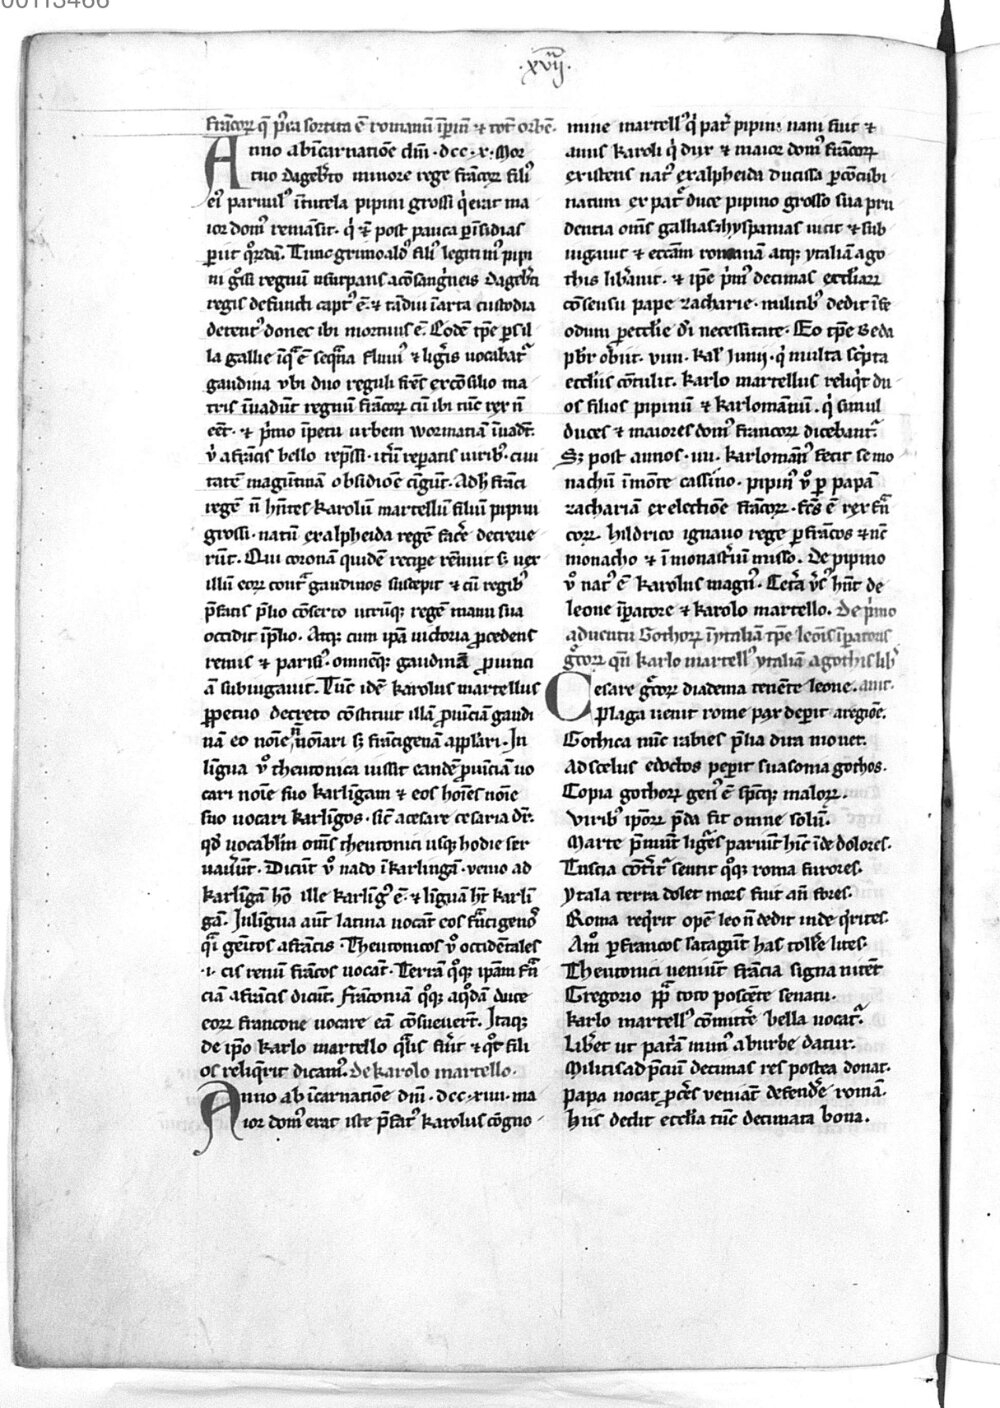 00113466
·xviij·
francoꝝ q̄ p̄ea sortita ē romanū īperiū ⁊ totū orbē·
Anno ab incarnatiōe dn̄i · dcc · x · Mor
tuo dageb̄to minore rege francoꝝ fili⁹
ei⁹ paruul⁹ ī tutela pipini grossi q̇ erat ma
ior dom⁹ remāsit · q̇ ⁊ post pauca p̄ īsidias
periit q̄rdā. Tunc grimoald⁹ fili⁹ legitim⁹ pipi
ni gͦssi regnū usurpans a cōsanġneis dageb̄ti
regis defuncti capt⁹ ē · ⁊ tādiu ī arta custodia
detent⁹ donec ibi mortuus ē. Eodē tp̄e p̄ sil
la gallie īq̄ ē seq̄na fluui⁹ ⁊ liḡis uocabat᷑
gaudina vbi duo reguli fr̄es ex cōsilio ma
tris īuadūt regnū francoꝝ cū ibi tūc rex nō
eēt · ⁊ p̄mo īpetu urbem wormatiā īuadūt.
v̊ a frācis bello rep̄ssi · itꝝ reparatis uirib⁹ · ciui
tatē maguntinā obsidiōe cīgūt. Adh̄ frāci
regē nō hn̄tes karolū martellū filiū pipini
grossi · natū ex alpheida regē facē decreue
rūt. Qui coronā quidē recipe renuit sꝫ uex
illū eoꝝ contra gaudinos suscepit ⁊ cū regib⁹
p̄fatis p̄lio cōserto utrūq; regē manu sua
occidit ī p̄lio. Atq; cum ip̄a uictoria procedens
remis ⁊ parisi⁹ · omnēq; gaudinā prouinci
ā subiugauit. Tūc idē karolus martellus
ꝑpetuo decreto cōstituit illā prouinciā gaudi
nā eo noīe nō noīari sꝫ francigenā appl̄ari · In
lingua v̊ theutonica iussit eandē prouinciā uo
cari noīe suo karlingam ⁊ eos hoīes noīe
suo uocari karlingos · sic̄ a cesare cesaria dr̄.
qd̄ uocablm̄ om̄s theutonici usq; hodie ser
uauerūt. Dicūt v̊ uado ī karlingā · uenio ad
karlingā hō ille karling⁹ ē · ⁊ linguā hꝫ karlī
gā. In lingua aūt latina uocāt eos frācigenos
qī genitos a frācis · Theutonicos v̊ occidētales
·i· cis renū frācos uocāt. Terrā q̊q; ip̄am frā
ciā a frācis dicūt. Franconiā q̊q; a q̊dā duce
eoꝝ francone uocare eā cōsueuerūt. Itaq;
de ip̄o karlo martello q̄lis fuit ⁊ q̄t fili
os reliq̄rit dicam⁹. de karolo martello·
Anno ab īcarnatiōe dn̄i · dcc · xiiii · ma
ior dom⁹ erat iste p̄fat⁹ karolus cōgno
mine martell⁹ q̇ patr̄ pipini nani fuit ⁊
auus karoli q̇ dux ⁊ maior dom⁹ francoꝝ
existens nat⁹ ex alpheida ducissa ꝑ cōcubi
natum ex patre duce pipino grosso sua pru
dentia om̄s gallias · hyspanias uicit ⁊ sub
iugauit ⁊ ecc̄am romanam atq; ytaliā a go
this lib̄auit · ⁊ ip̄e p̄m⁹ decimas eccl̄iaꝝ
cōsensu pape zacharie · militib⁹ dedit ī fe
odum p̄ eccl̄ie d̄i necessitate · Eo tp̄e Beda
pb̄r obiit · viii · kal̄ Iunij · q̇ multa sc̄pta
eccl̄iis cōtulit. karlo martellus reliq̇t du
os filios pipinū ⁊ karlomannū. q̇ simul
duces ⁊ maiores dom⁹ francoꝝ dicebant᷑.
Sꝫ post annos · iiii · karlomann⁹ fecit se mo
nachū ī mōte cassino · pipin⁹ v̊ ꝑ papā
zachariā ex electiōe francoꝝ · fc̄s ē rex frā
coꝝ · hildrico ignauo rege ꝑ francos ⁊ nūc
monacho ⁊ ī monast̄iū misso. De pipino
v̊ nat⁹ ē karolus magn⁹. Cetā v̄s⁹ hn̄t de
leone īpatore ⁊ karolo martello. De p̄mo
aduentu Gothoꝝ ī ytaliā tp̄e leōis īpatoris
grecoꝝ qn̄ karlo martell⁹ ytaliā a gothis lib
Cesare grecoꝝ diadema tenēte leone. auit.
Plaga uenit rome pax deperit a regiōe.
Gothica nūc rabies p̄lia dira mouet.
Ad scelus edoctos peperit sua soma gothos.
Copia gothoꝝ gen⁹ ē sp̄esq; maloꝝ.
Virib⁹ ip̄oꝝ p̄da fit omne solū.
Marte p̄munt ligures pariunt hinc īde dolores.
Tuscia cōterit᷑ sentit q̊q; roma furores.
ytala terra dolet mors fuit an̄ fores.
Roma requirit opē leo nō dedit inde q̇rites.
Am̊ p̄ francos satagunt has tolle lites.
Theutonici ueniūt francia signa nitent
Gregorio pp̄ toto poscēte senatu.
karlo martell⁹ cōmitte bella uocat᷑.
Lib̄et ut patriā mun⁹ ab urbe datur.
Militis ad p̄ciū decimas res postea donat.
Papa uocat proceres ueniāt defendere romā.
Hiis dedit eccl̄ia tūc decimata bona.